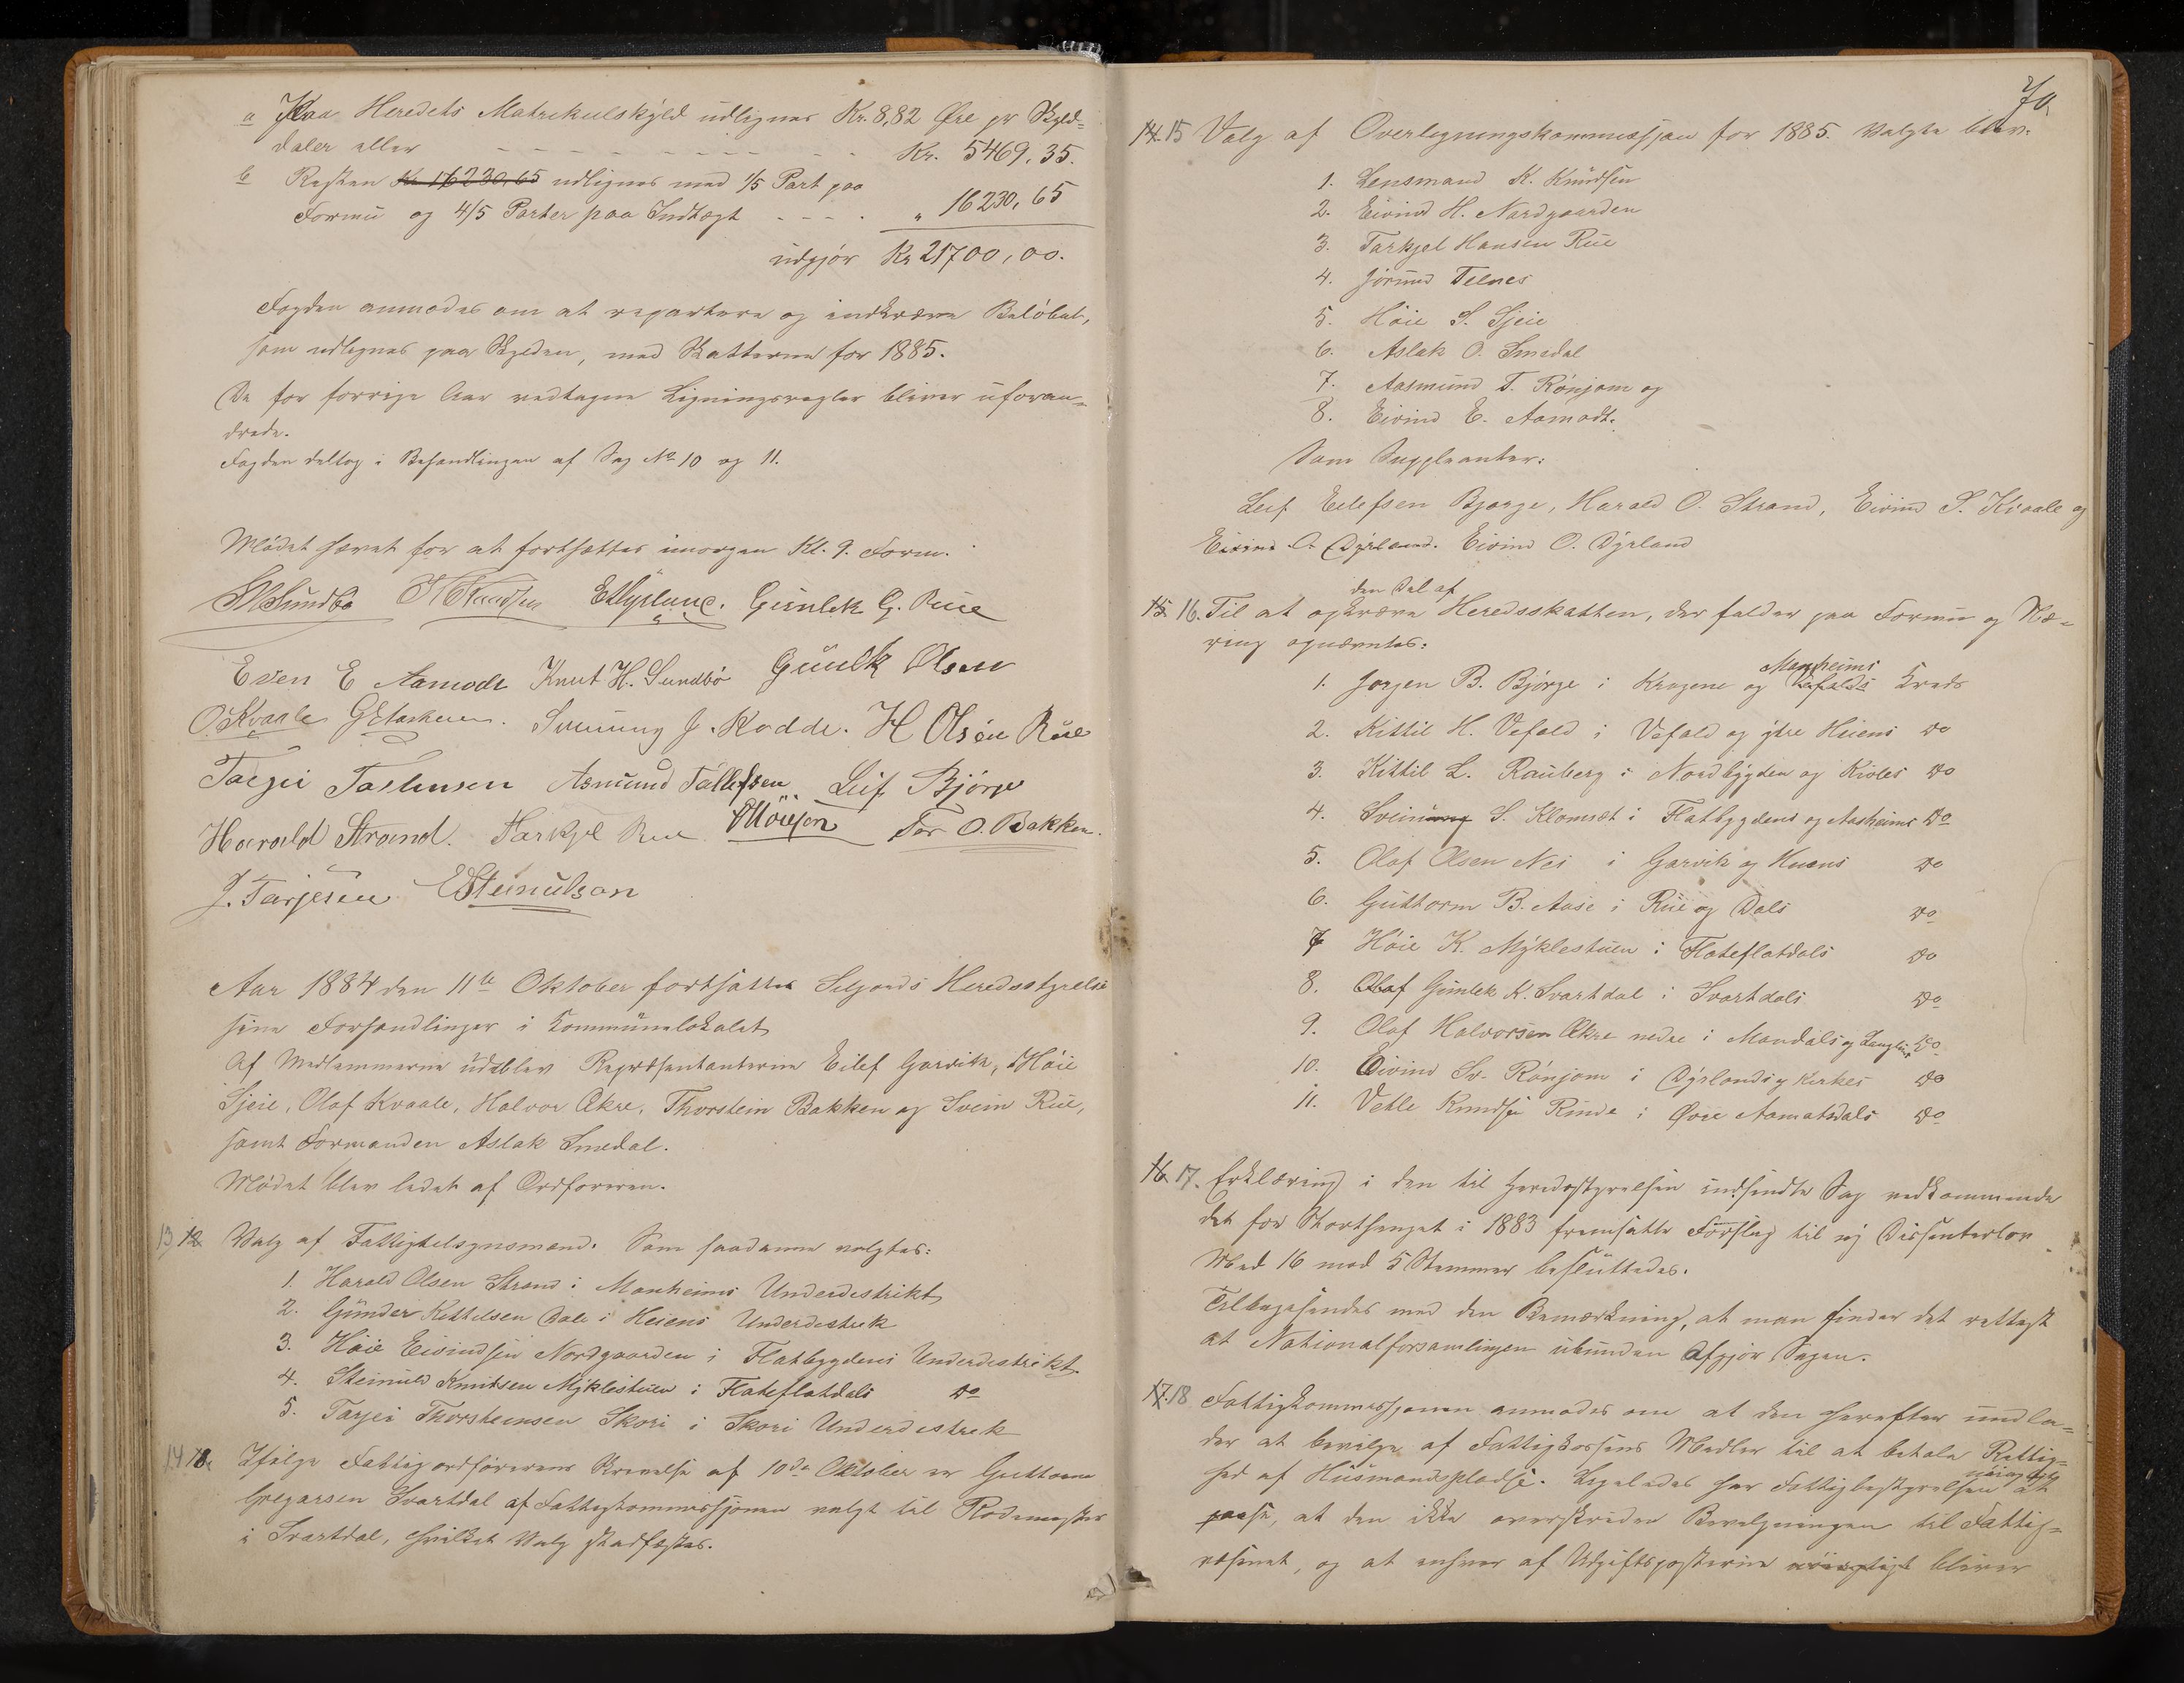 a Paa Heredets Matrikulskyld udlignes Kr. 8,82 Øre pr Skyld-
daler eller - - - - - - - - - - Kr. 5469,35.
b Resten Kr 16230,65 udlignes med 1/5 Part paa
Formu og 4/5 Parter paa Indtægt - - - - " 16230,65
udgjør Kr 21700,00.
Fogden anmodes om at repartere og indkræve Beløbet,
som udlignes paa Skylden, med Skatterne for 1885.
De for forrige Aar vedtagne Ligningsregler bliver uforan-
drede.
Fogden deltog i Behandlingen af Sag No 10 og 11.
Mødet hævet for at fortsættes imorgen Kl. 9. Form.
Gunlek G. Rue
Even E Aamodt Knut H. Sundbø Gunlk Olsen
O Kvaale Svenung J. Kodde. H Olsen Rue
Tarjei Tostensen Asmund Tallefsen Leif Bjørge
Harald Strand. Tarkjel Rue Tor O. Bakken.
J. Tarjesen E Steinulson
Aar 1884 den 11te Oktober fortsatte Seljords Heredsstyrelse
sine Forhandlinger i Kommunelokalet
Af Medlemmerne udeblev Repræsentanterne Eilef Garvik, Høie
Sjeie, Olaf Kvaale, Halvor Økre, Thorstein Bakken og Svein Rue,
samt Formanden Aslak Smedal.
Mødet blev ledet af Ordføreren.
13 12 Valg af Fattigtilsynsmænd. Som saadanne valgtes:
1. Harald Olsen Strand i Manheims Underdistrikt
2. Gunder Kittelsen Dale i Heiens Underdistrik
3. Høie Eivindsen Nordgaarden i Flatbygdens Underdistrikt
4. Steinuld Knutsen Myklestuen i Flateflatdals do
5. Tarjei Thorsteinsen Skori i Skori Underdistrik
14 13. Ifølge Fattigordførerens Skrivelse af 10de Oktober er Guttorm
Gregarsen Svartdal af Fattigkommissjonen valgt til Rodemester
i Svartdal, hvilket Valg stadfæstes.
70
14. 15 Valg af Overligningskommissjon for 1885. Valgte blev:
1. Lensmand K. Knudsen
2. Eivind H. Nordgaarden
3. Tarkjel Hansen Rue
4. Jørund Telnes
5. Høie S. Sjeie
6. Aslak O. Smedal
7. Aasmund T. Rønjom og
8. Eivind E. Aamodt.
Som Suppleanter:
Leif Eilefsen Bjørge, Harald O. Strand, Eivind S. Kvaale og
Eivind O. Dyrland. Eivind O. Dyrland
den Del af
15. 16. Til at opkræve Heredsskatten, der falder paa Formu og Næ-
ring opnævntes:
Manheims
1. Jørgen B. Bjørge i Kragene og Vefalds Kreds
2. Kittil H. Vefald i Vefald og ytre Heiens do
3. Kittil L. Rauberg i Nordbygden og Kivles do
4. Sveinung S. Klomset i Flatbygdens og Aasheims do
5. Olaf Olsen Nes i Garvik og Huens do
6. Guttorm B. Aase i Rue og Dals do
7 Høie K. Myklestuen i Flateflatdals do
8. Olaf Gunlek K. Svartdal i Svartdals do
9. Olaf Halvorsen Økre nedre i Mandals og Langlim do
10. Eivind Sv. Rønjom i Dyrlands og Kirkes do
11. Vetle Knudsen Rinde i Øvre Aamotsdals do
16. 17. Erklæring i den til Heredsstyrelsen indsendte Sag vedkommende
det for Storthinget i 1883 fremsatte Forslag til ny Dissenterlov
Med 16 mod 5 Stemmer besluttedes.
Tilbagesendes med den Bemærkning, at man finder det rettest
at Nationalforsamlingen ubunden afgjør Sagen.
17. 18 Fattigkommissjonen anmodes om at den herefter undla-
der at bevilge af Fattigkassens Midler til at betale Rettig-
hed af Husmandspladse. Ligeledes har Fattigbestyrelsen nøiagtig at
paase, at den ikke overskrider Bevilgningen til Fattig-
væsenet, og at enhver af Udgiftsposterne nøiagtigt bliver